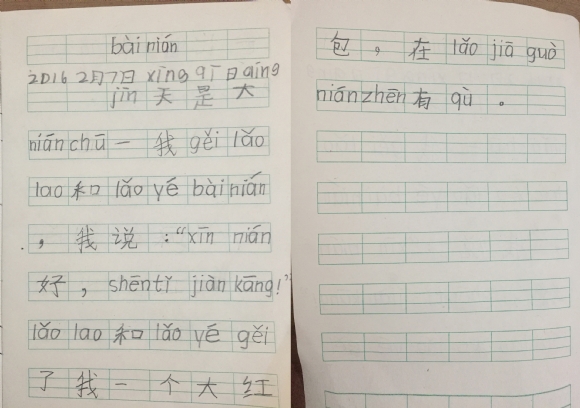 bài nián
2016 2月7日 xīng qī 日 qíng
jīn 天 是 大
nián chū 一 我 gěi lǎo
lao 和 lǎo yé bài nián
，我 说：“xīn nián
好，shēn tǐ jiàn kāng！”
lǎo lao 和 lǎo yé gěi
了 我 一 个 大 红
包，在 lǎo jiā guò
nián zhēn 有 qù。